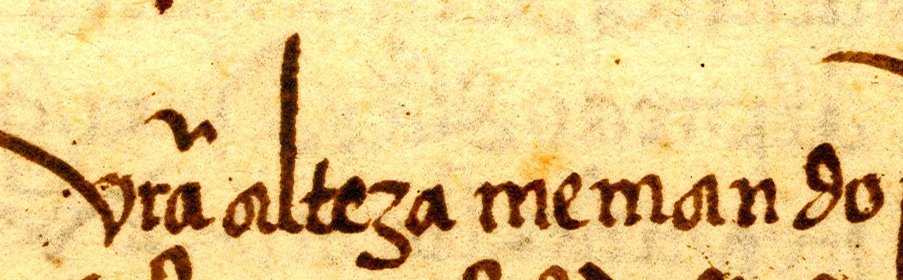 vrã alteza me man do